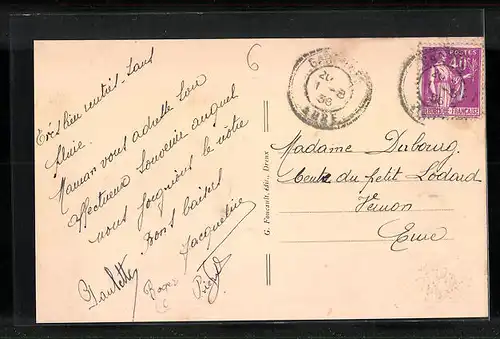 6
Très bien rentrés. Sans
pluie.
Maman vous adresse son
affectueux Souvenir auquel
nous joignons le nôtre
Bons baisers
Jacqueline
Paulette
Roger
G. Foucault, édit., Dreux
20
1 -8
36
EURE
POSTES
40c
REPUBLIQUE FRANÇAISE
Madame Dubourg
du petit Lodard
Vernon
Eure